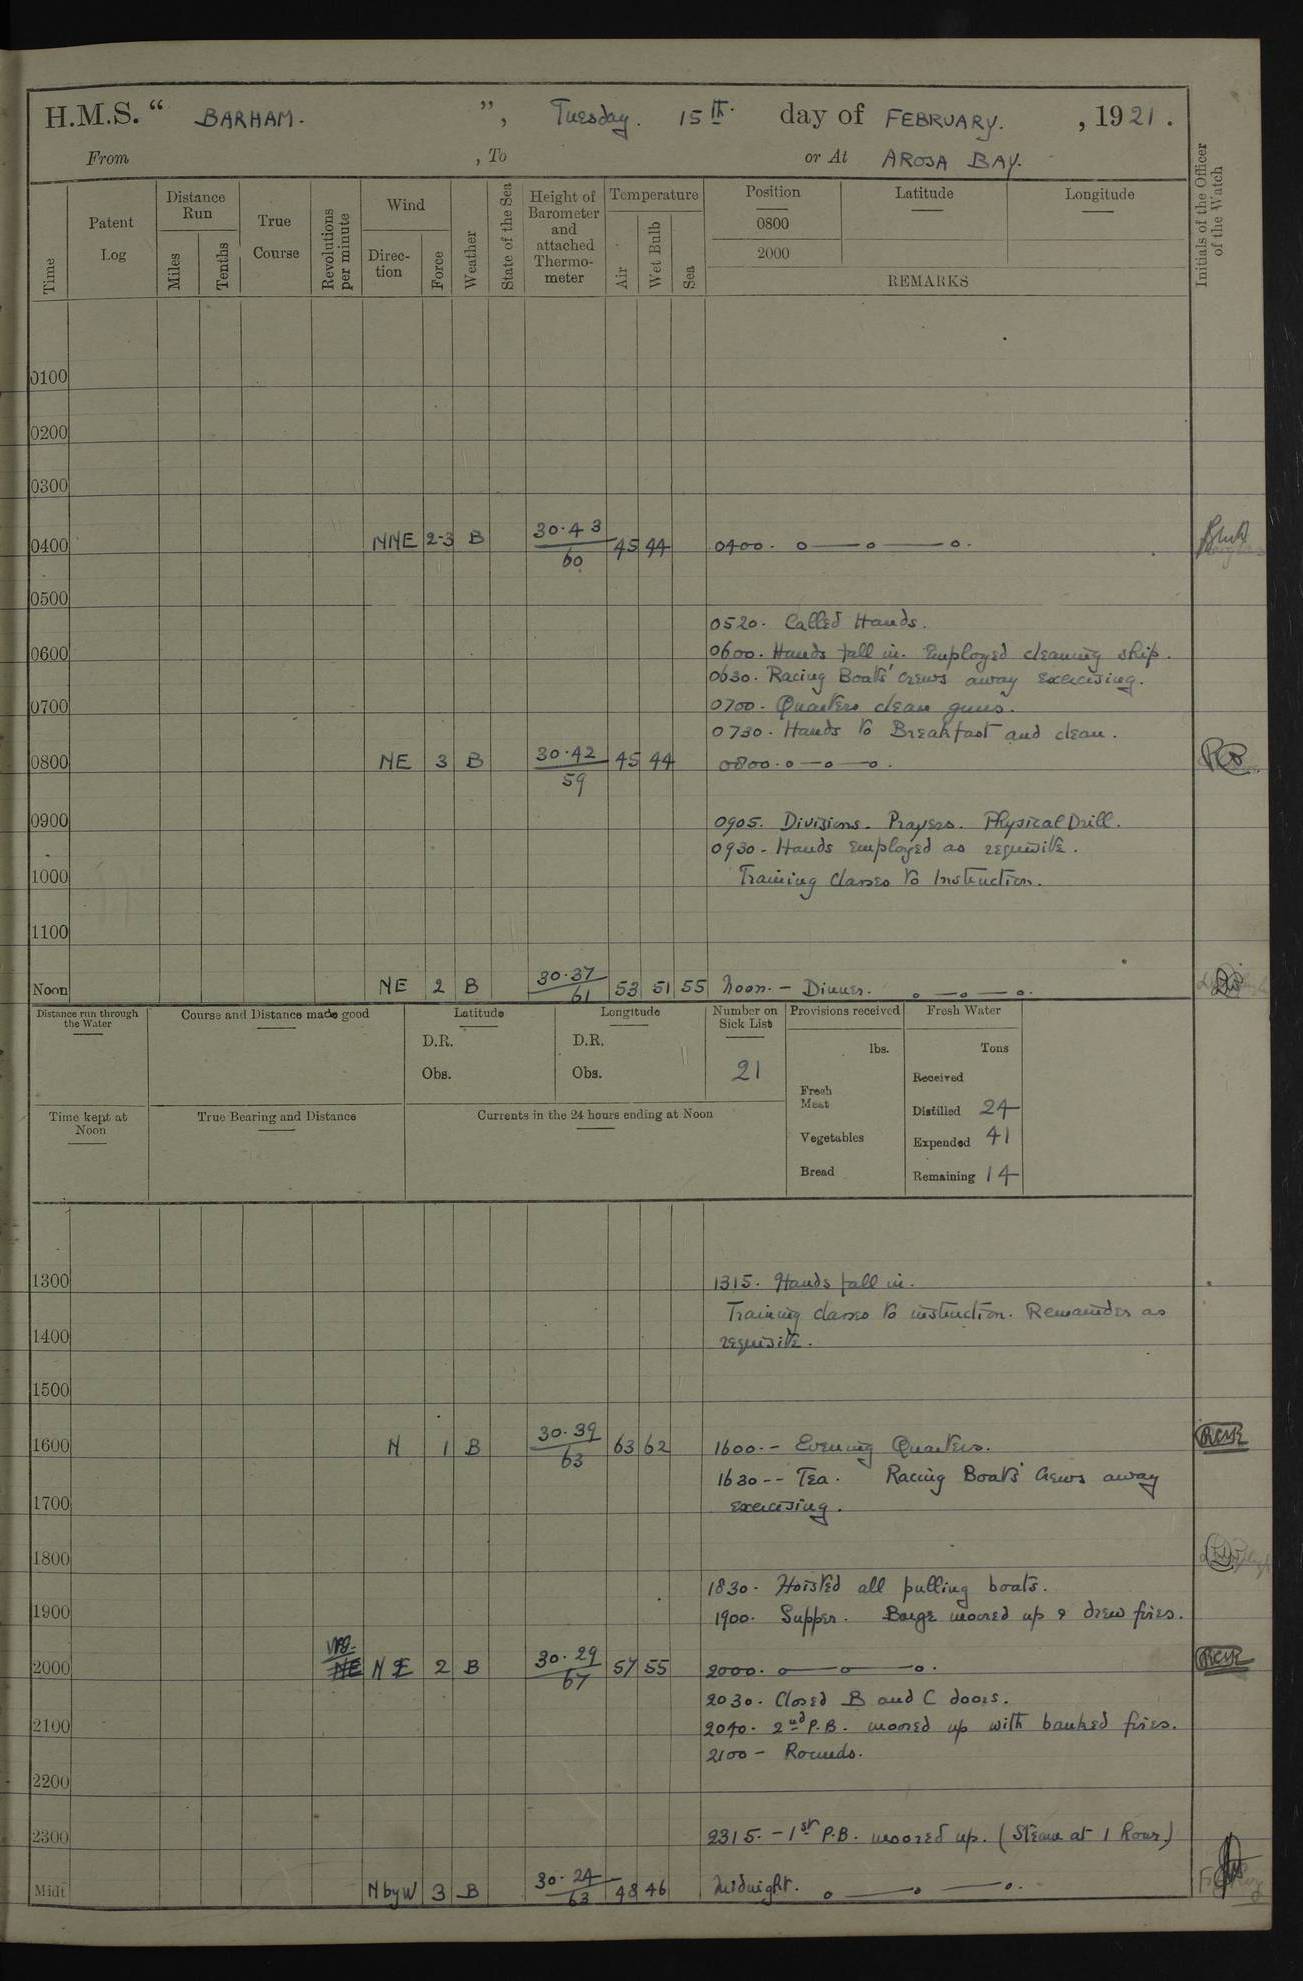 H.M.S. “ BARHAM. ”, Tuesday. 15th. day of FEBRUARY. , 1921.
From , To or At AROSA BAY.
Time
Patent Log
Distance Run
Miles
Tenths
True Course
Revolutions per minute
Wind
Direction
Force
Weather
State of the Sea
Height of Barometer and attached Thermometer
Temperature
Air
Wet Bulb
Sea
Position
Latitude
Longitude
0800
2000
REMARKS
Initials of the Officer of the Watch
0100
0200
0300
0400 NNE 2-3 B 30.43/60 45 44 0400. o——o——o.
0500
0520. Called Hands.
0600 0600. Hands fall in. Employed cleaning ship.
0630. Racing Boats' Crews away exercising.
0700 0700. Quarters clean guns.
0730. Hands to Breakfast and clean.
0800 NE 3 B 30.42/59 45 44 0800. o—o—o.
0900 0905. Divisions. Prayers. Physical Drill.
0930. Hands employed as requisite.
1000 Training Classes to Instruction.
1100
Noon NE 2 B 30.37/61 53 51 55 Noon. – Dinner. o—o—o.
Distance run through the Water
Course and Distance made good
Latitude
D.R.
Obs.
Longitude
D.R.
Obs.
Number on Sick List
21
Provisions received
lbs.
Fresh Meat
Vegetables
Bread
Fresh Water
Tons
Received
Distilled 24
Expended 41
Remaining 14
Time kept at Noon
True Bearing and Distance
Currents in the 24 hours ending at Noon
1300 1315. Hands fall in.
Training classes to instruction. Remainder as
1400 requisite.
1500
1600 N 1 B 30.39/63 63 62 1600. – Evening Quarters.
1630 -- Tea. Racing Boats' Crews away
1700 exercising.
1800
1830. Hoisted all pulling boats.
1900 1900. Supper. Barge moored up & drew fires.
2000 NE NE 2 B 30.29/67 57 55 2000. o——o——o.
2030. Closed B and C doors.
2100 2040. 2nd P.B. moored up with banked fires.
2100 – Rounds.
2200
2300 2315. – 1st P.B. moored up. (Steam at 1 hour)
Midt NbyW 3 B 30.24/63 48 46 Midnight. o——o——o.